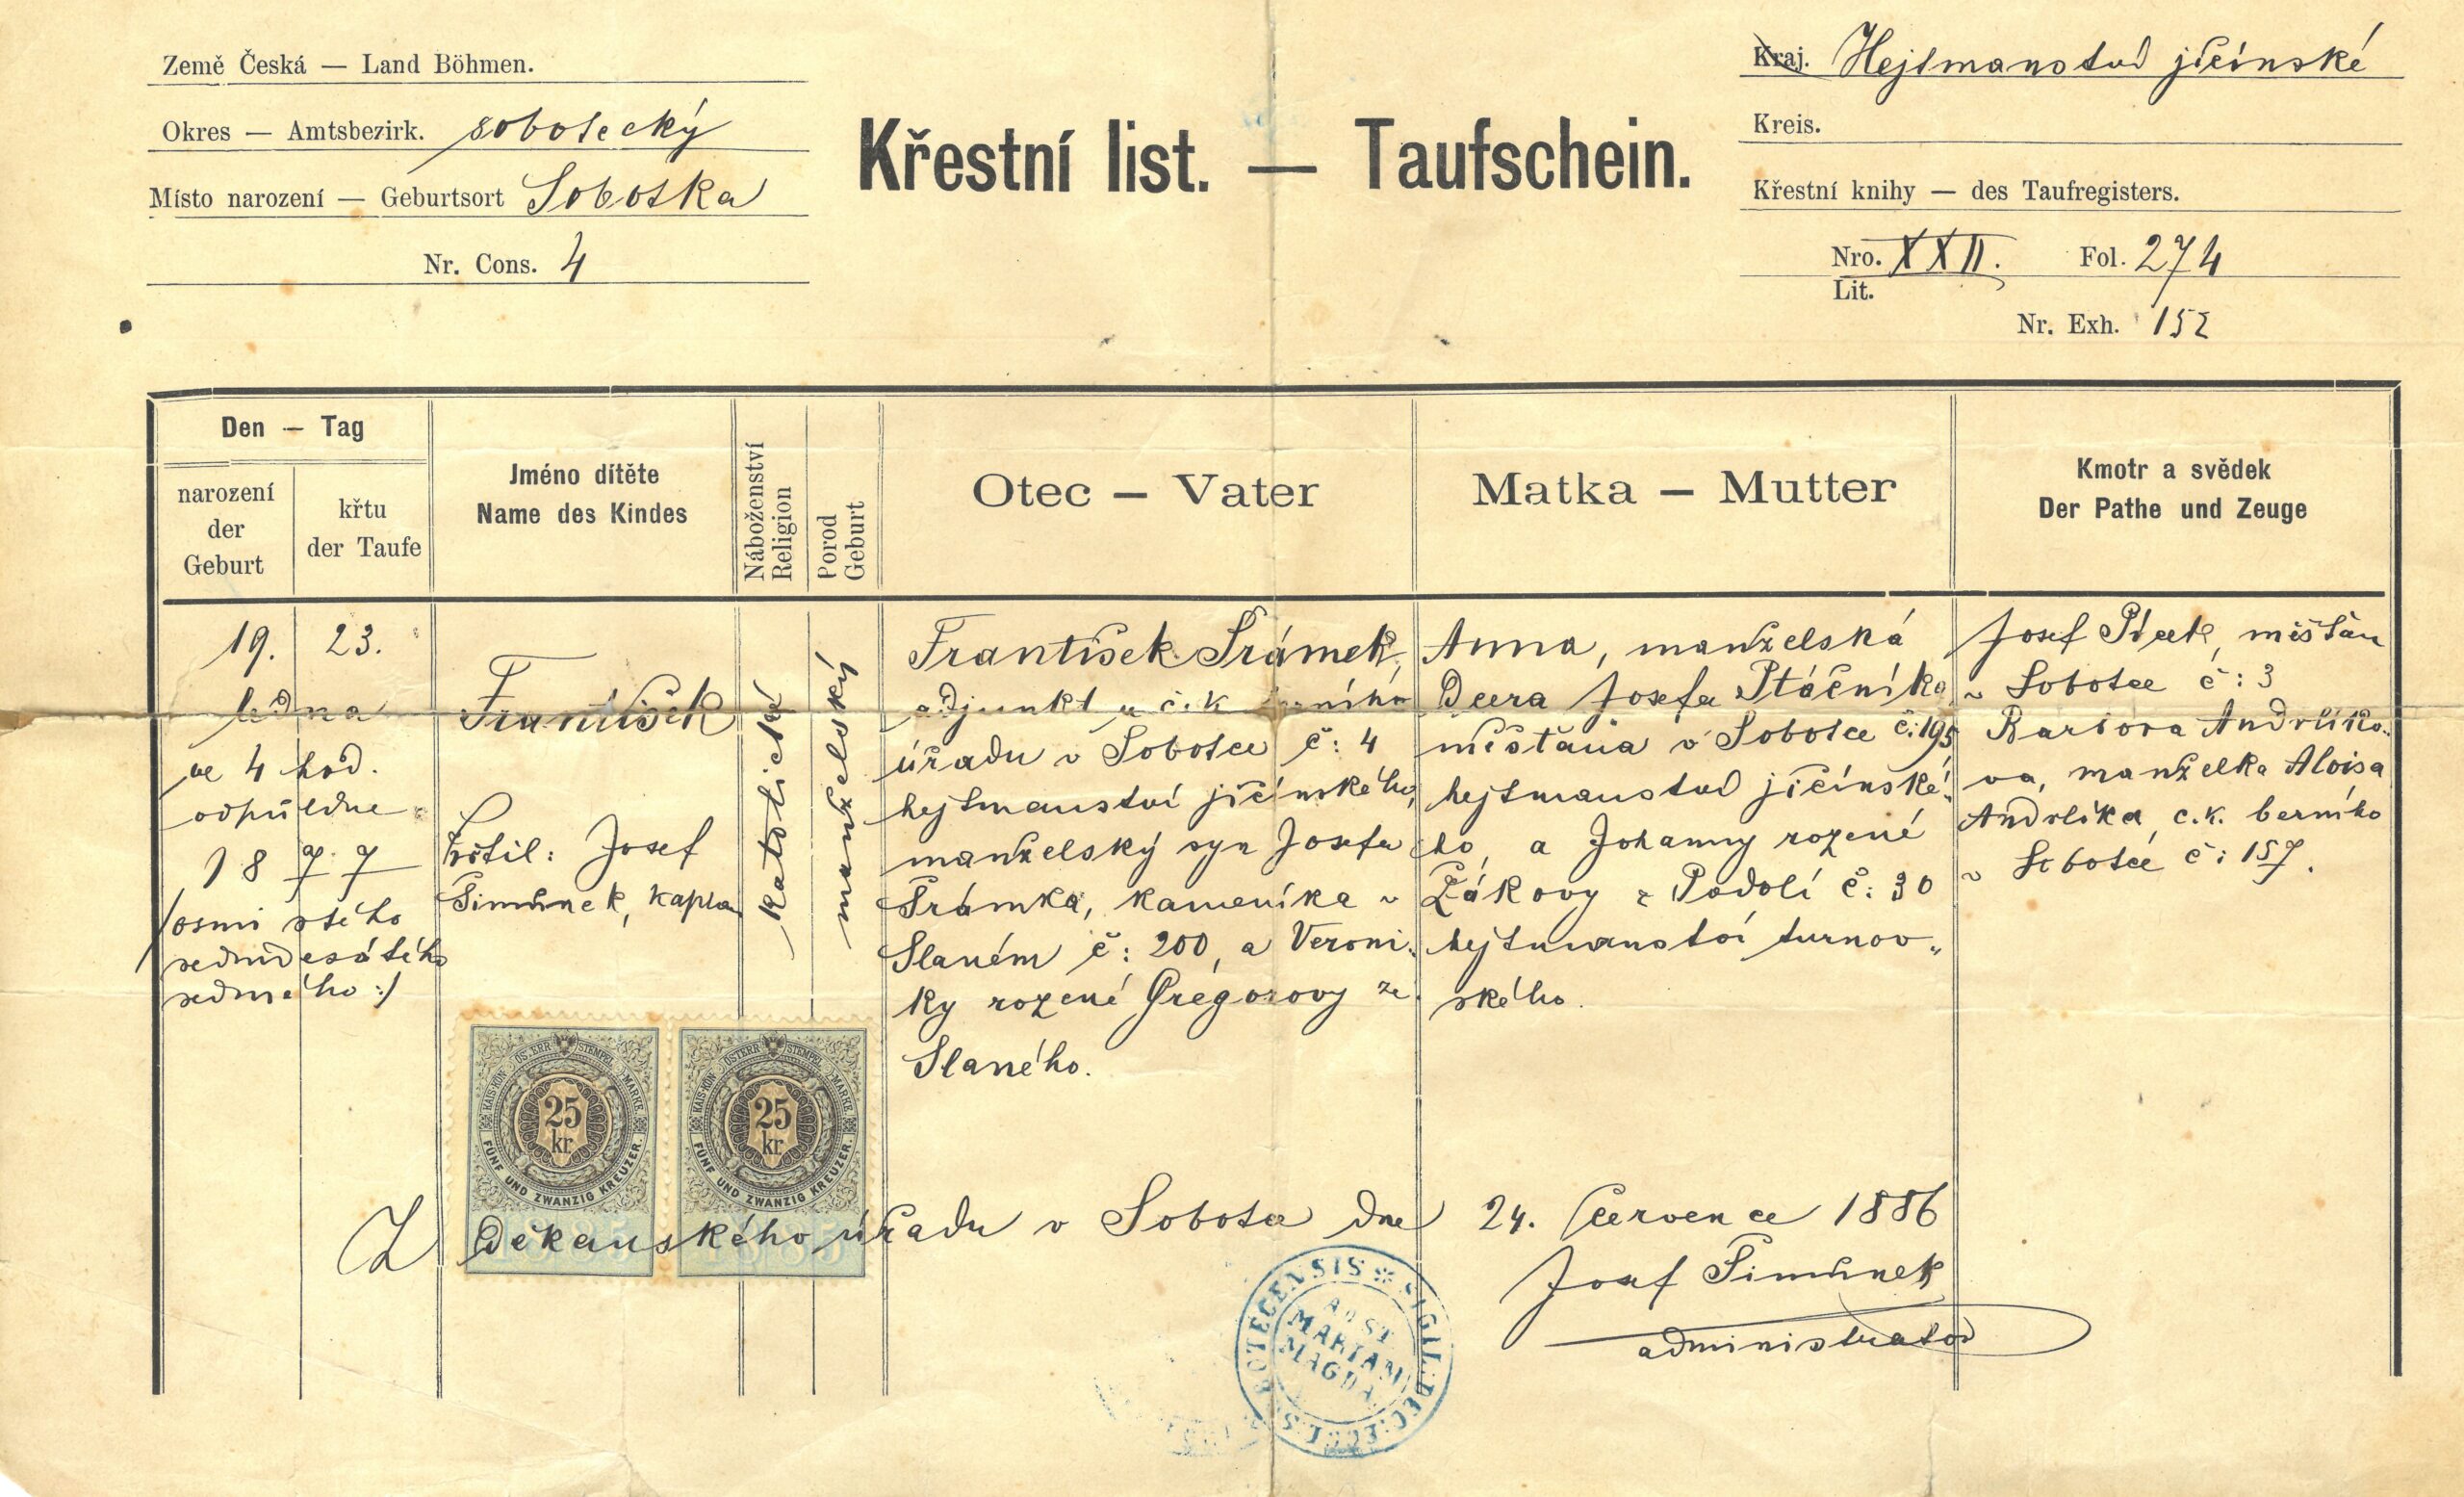 Země Česká — Land Böhmen.
Okres — Amtsbezirk. sobotecký
Místo narození — Geburtsort Sobotka
Nr. Cons. 4
Křestní list. — Taufschein.
Kraj. Hejtmanství jičínské
Kreis.
Křestní knihy — des Taufregisters.
Nro. XXII. Fol. 274
Lit.
Nr. Exh. 152
Den — Tag
narození
der
Geburt
křtu
der Taufe
Jméno dítěte
Name des Kindes
Náboženství
Religion
Porod
Geburt
Otec — Vater
Matka — Mutter
Kmotr a svědek
Der Pathe und Zeuge
19. 23.
ledna
ve 4 hod.
odpůldne
1877
/osmi stého
sedmdesátého
sedmého:/
František
Křtil: Josef
Šimůnek, kaplan
katolické
manželský
František Šrámek,
adjunkt u c.k. berního
úřadu v Sobotce č: 4
hejtmanství jičínského,
manželský syn Josefa
Šrámka, kameníka v
Slaném č: 200, a Veroni-
ky rozené Gregorovy ze
Slaného.
Anna, manželská
dcera Josefa Ptáčníka
měšťana v Sobotce č: 195
hejtmanství jičínské-
ho, a Johanny rozené
Žákovy z Podolí č: 30
hejtmanství turnov-
ského.
Josef měšťan
v Sobotce č: 3
Barbora Andrlíko-
va, manželka Aloisa
Andrlíka c.k. berního
v Sobotce č: 157.
KAIS. KÖN. ÖSTERR. STEMPEL MARKE
25
kr.
FÜNF UND ZWANZIG KREUZER.
1885
KAIS. KÖN. ÖSTERR. STEMPEL MARKE
25
kr.
FÜNF UND ZWANZIG KREUZER.
1885
Z Děkanského úřadu v Sobotce dne 24. července 1886
Josef Šimůnek
administrator
SIGIL. DEC. ECCLS. SOBOTECENSIS
MARIAM
MAGDA